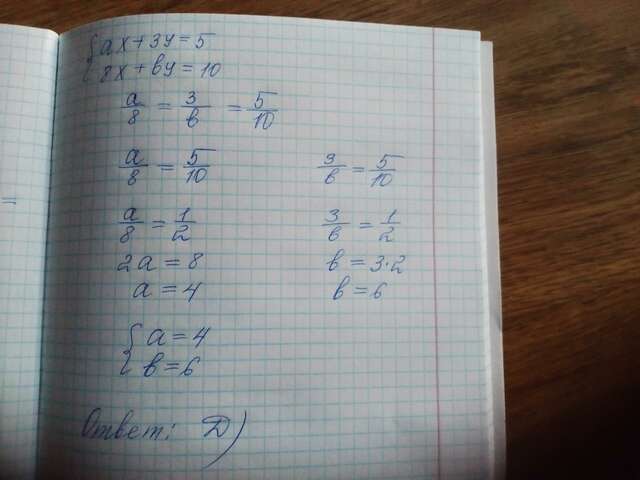 {ax + 3y = 5
8x + вy = 10
a/8 = 3/в = 5/10
a/8 = 5/10
3/в = 5/10
a/8 = 1/2
3/в = 1/2
2a = 8
в = 3·2
a = 4
в = 6
{a = 4
в = 6
Ответ: D)
=